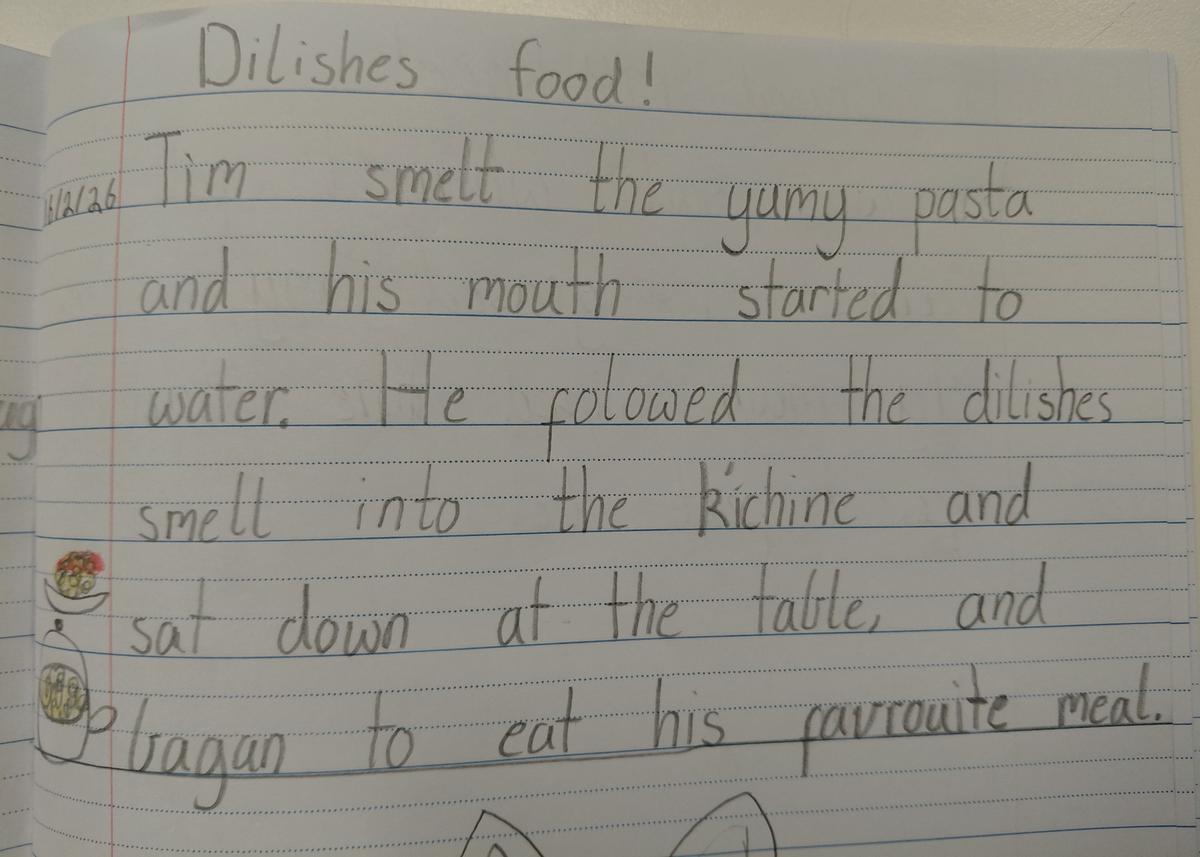 Dilishes food!
Tim smelt the yumy pasta
and his mouth started to
water. He folowed the dilishes
smell into the kichine and
sat down at the table, and
bagan to eat his favrouite meal.